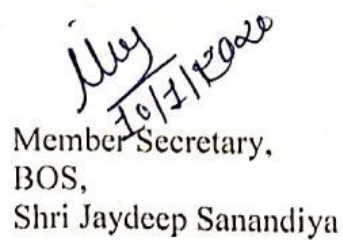 10/1/2020
Member Secretary,
BOS,
Shri Jaydeep Sanandiya